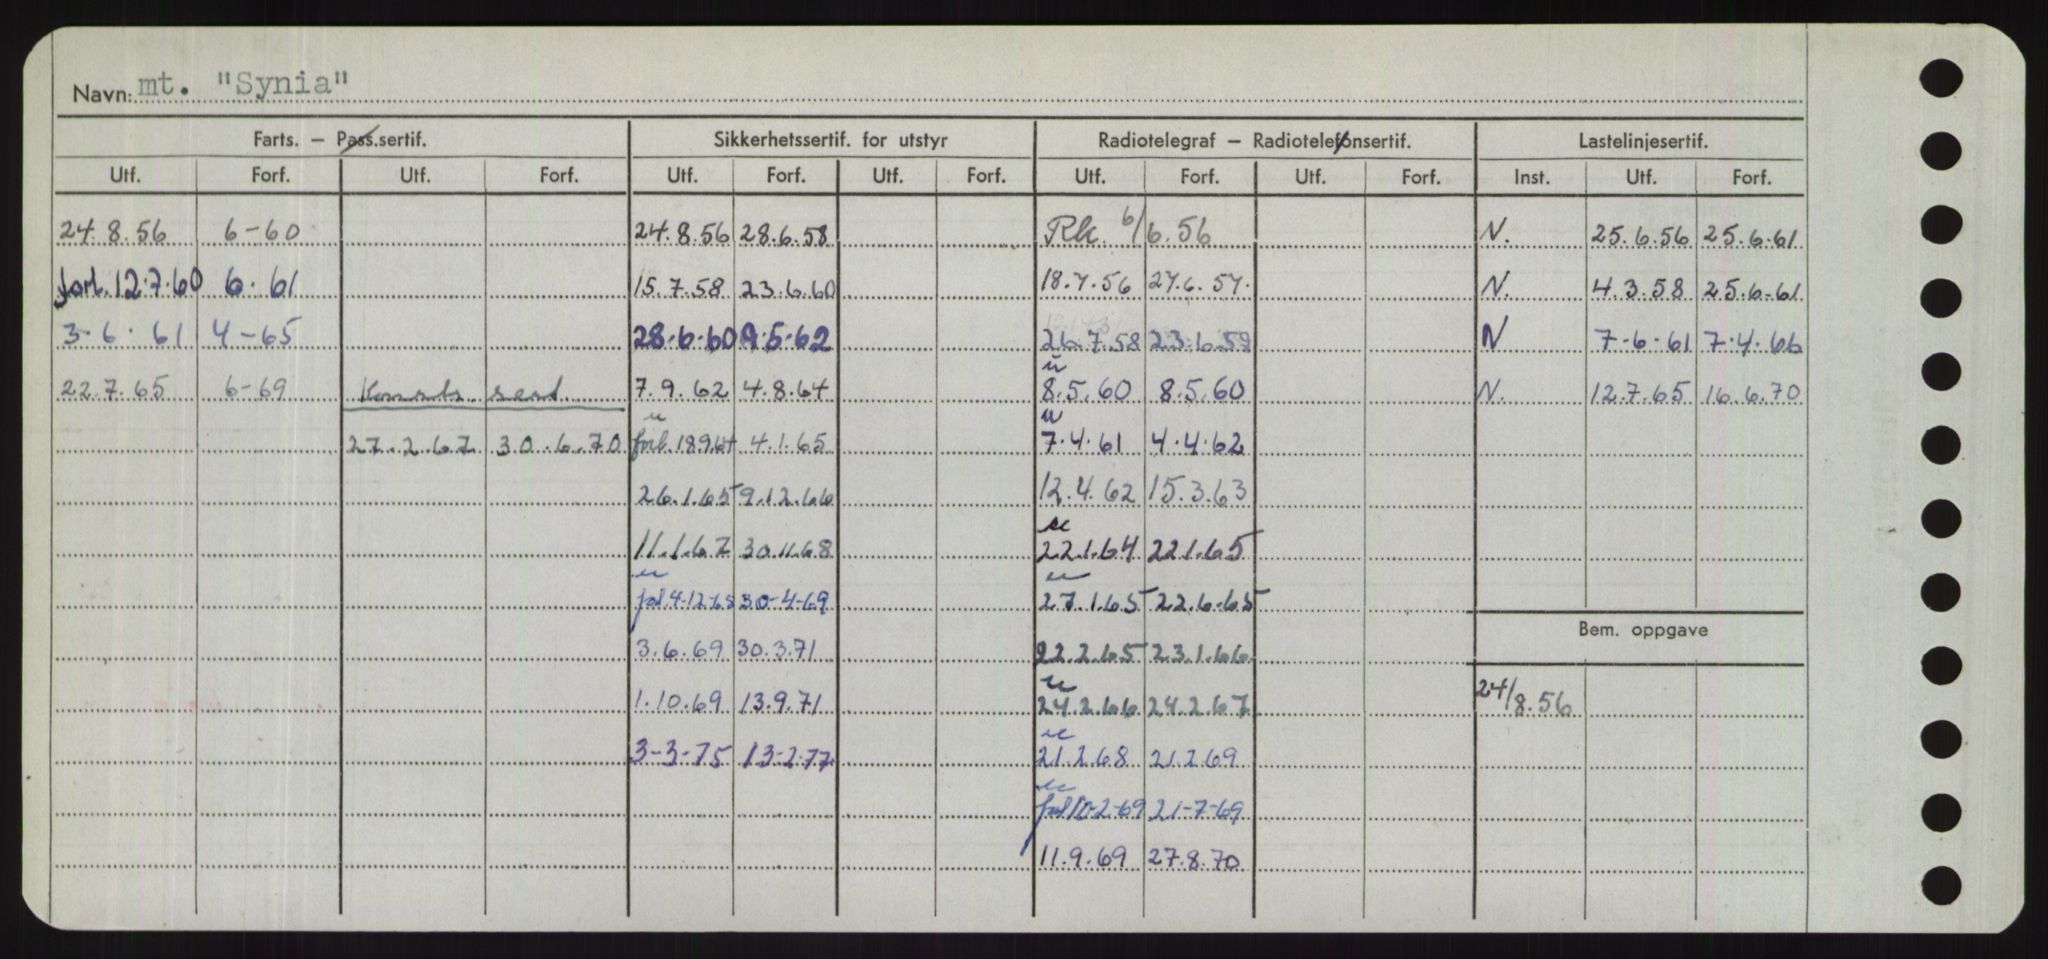 Navn: mt. "Synia"
Farts. — Pass.sertif. Sikkerhetssertif. for utstyr Radiotelegraf — Radiotelefonsertif. Lastelinjesertif.
Utf. Forf. Utf. Forf. Utf. Forf. Utf. Forf. Utf. Forf. Utf. Forf. Inst. Utf. Forf.
24.8.56 6-60 24.8.56 28.6.58 Rk. 6/6.56 N. 25.6.56 25.6.61
forl. 12.7.60 6.61 15.7.58 23.6.60 18.7.56 27.6.57. N. 4.3.58 25.6.61
3-6.61 4-65 28.6.60 9.5.62 26.7.58 23.6.59 N 7-6-61 7.4.66
22.7.65 6-69 Konstr. sert 7.9.62 4.8.64 8.5.60 8.5.60 N. 12.7.65 16.6.70
27.2.67 30.6.70 forl. 18.9.64 4.1.65 7.4.61 4.4.62
26.1.65 9.12.66 12.4.62 15.3.63
11.1.67 30.11.68 22.1.64 22.1.65
4-12-68 30-4-69 27.1.65 22.6.65
Bem. oppgave
3.6.69 30.3.71 22.2.65 23.1.66
1.10.69 13.9.71 24.2.66 24.2.67 24/8.56
3-3-75 13-2-77 21.2.68 21.2.69
10-2-69 21-7-69
11.9.69 27.8.70